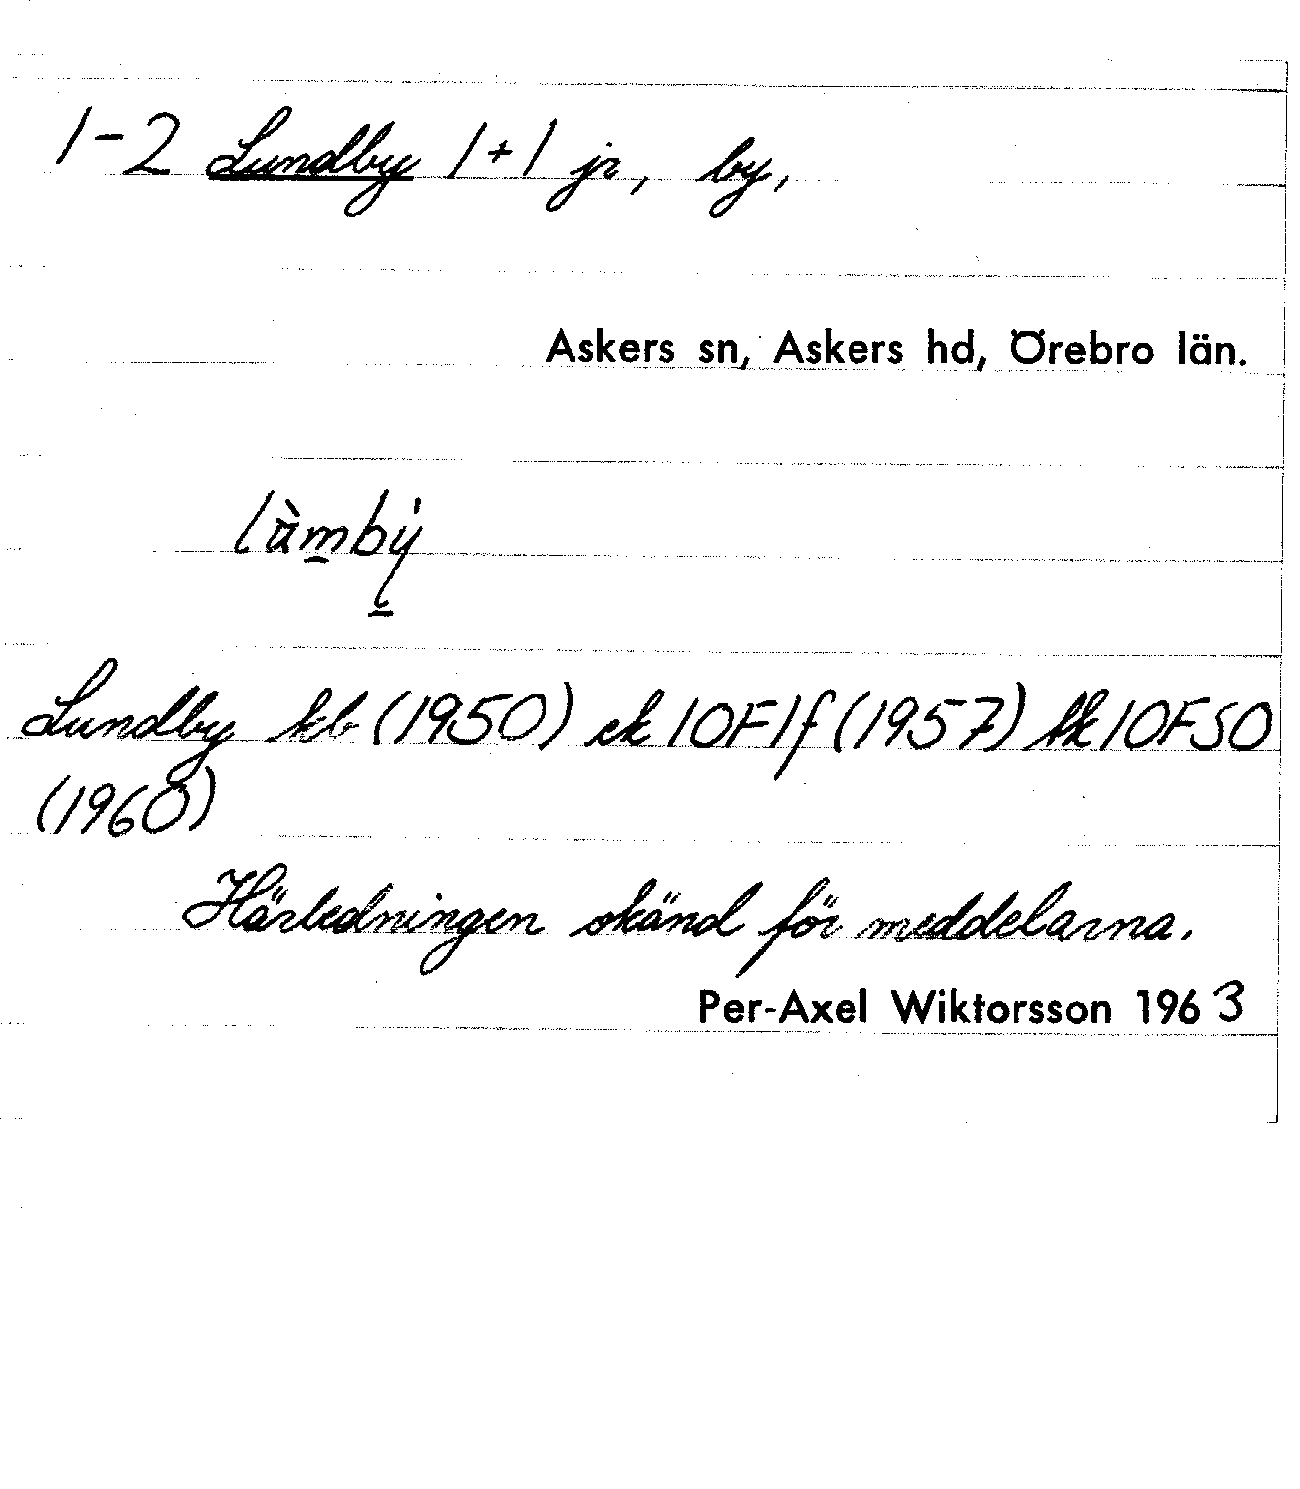 1-2 Lundby 1+1 jr, by,
Askers sn, Askers hd, Örebro län.
Lundby kb (1950) ek 10F1f (1957) tk 10F SO
(1960)
Härledningen okänd för meddelarna.
Per-Axel Wiktorsson 1963